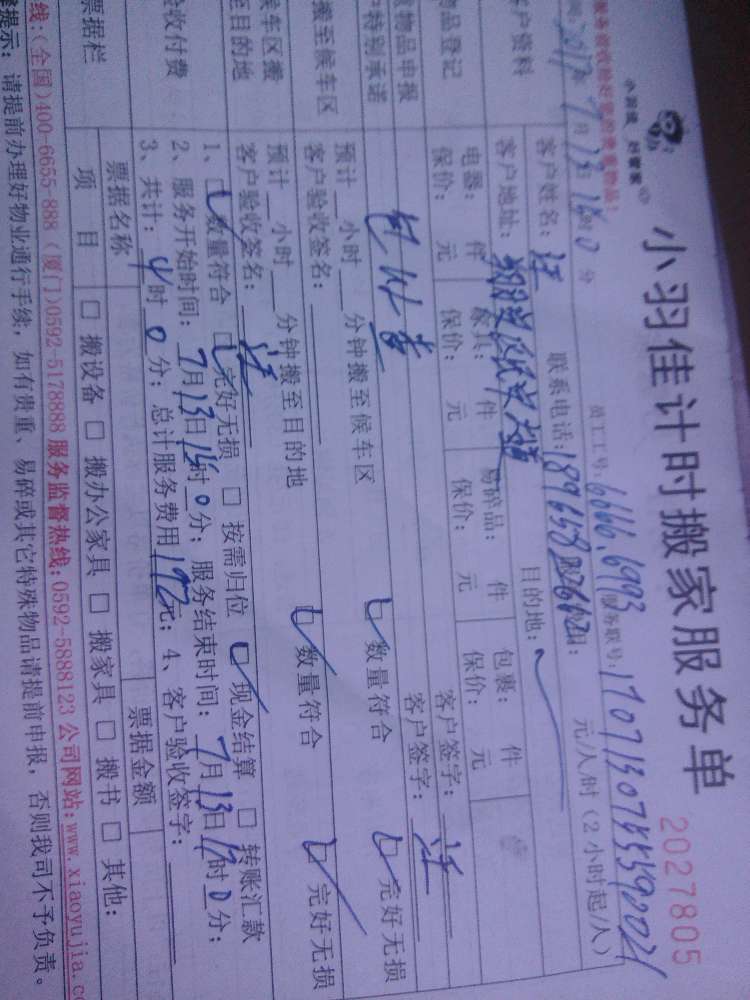 小羽佳 好管家
小羽佳计时搬家服务单
2027805
员工工号: 6666.6993 服务联号:
2017年7月13日
分
元/人/时（2小时起/人）
客户资料
客户姓名: 汪
联系电话:
客户地址:
目的地:
物品登记
电器: 件 家具: 件 易碎品: 件 包裹: 件
保价: 元 保价: 元 保价: 元 保价: 元
客户签字:
物品申报
特别承诺
客户签字: 汪
搬至候车区
预计__小时__分钟搬至候车区
数量符合
完好无损
客户验收签名:
候车区搬
至目的地
预计__小时__分钟搬至目的地
数量符合
完好无损
客户验收签名: 汪
验收付费
1、数量符合 完好无损 按需归位 现金结算 转账汇款
2、服务开始时间: 7月13日 时0分; 服务结束时间: 7月13日 时0分;
3、共计: 4时0分; 总计服务费用192元; 4、客户验收签字:
票据栏
票据名称
票据金额
项目
搬设备 搬办公家具 搬家具 搬书 其他:
线:(全国)400-6655-888 (厦门)0592-5178888 服务监督热线: 0592-5888123 公司网站: www.xiaoyujia.c
提示: 请提前办理好物业通行手续, 如有贵重、易碎或其它特殊物品请提前申报, 否则我司不予负责。